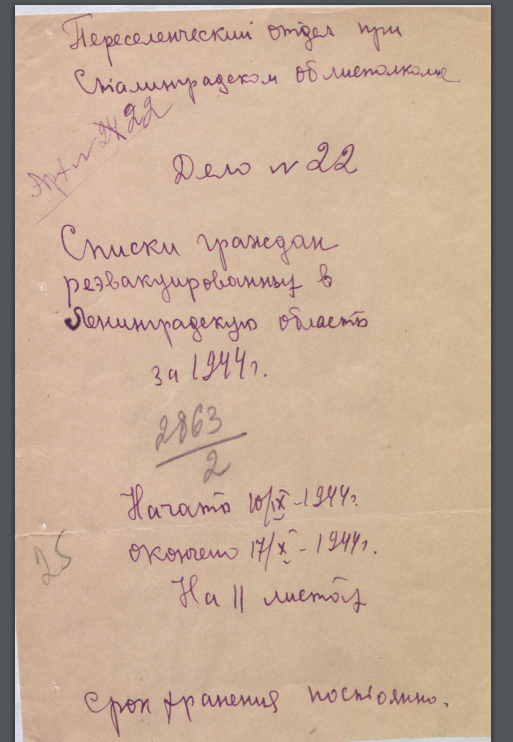 Переселенческий отдел при
Сталинградском облисполкоме
Арх N 22
Дело N 22
Списки граждан
реэвакуированных в
Ленинградскую область
за 1944 г.
2863
2
Начато 10/IX - 1944 г.
окончено 17/X - 1944 г.
25
На 11 листах
Срок хранения постоянно.